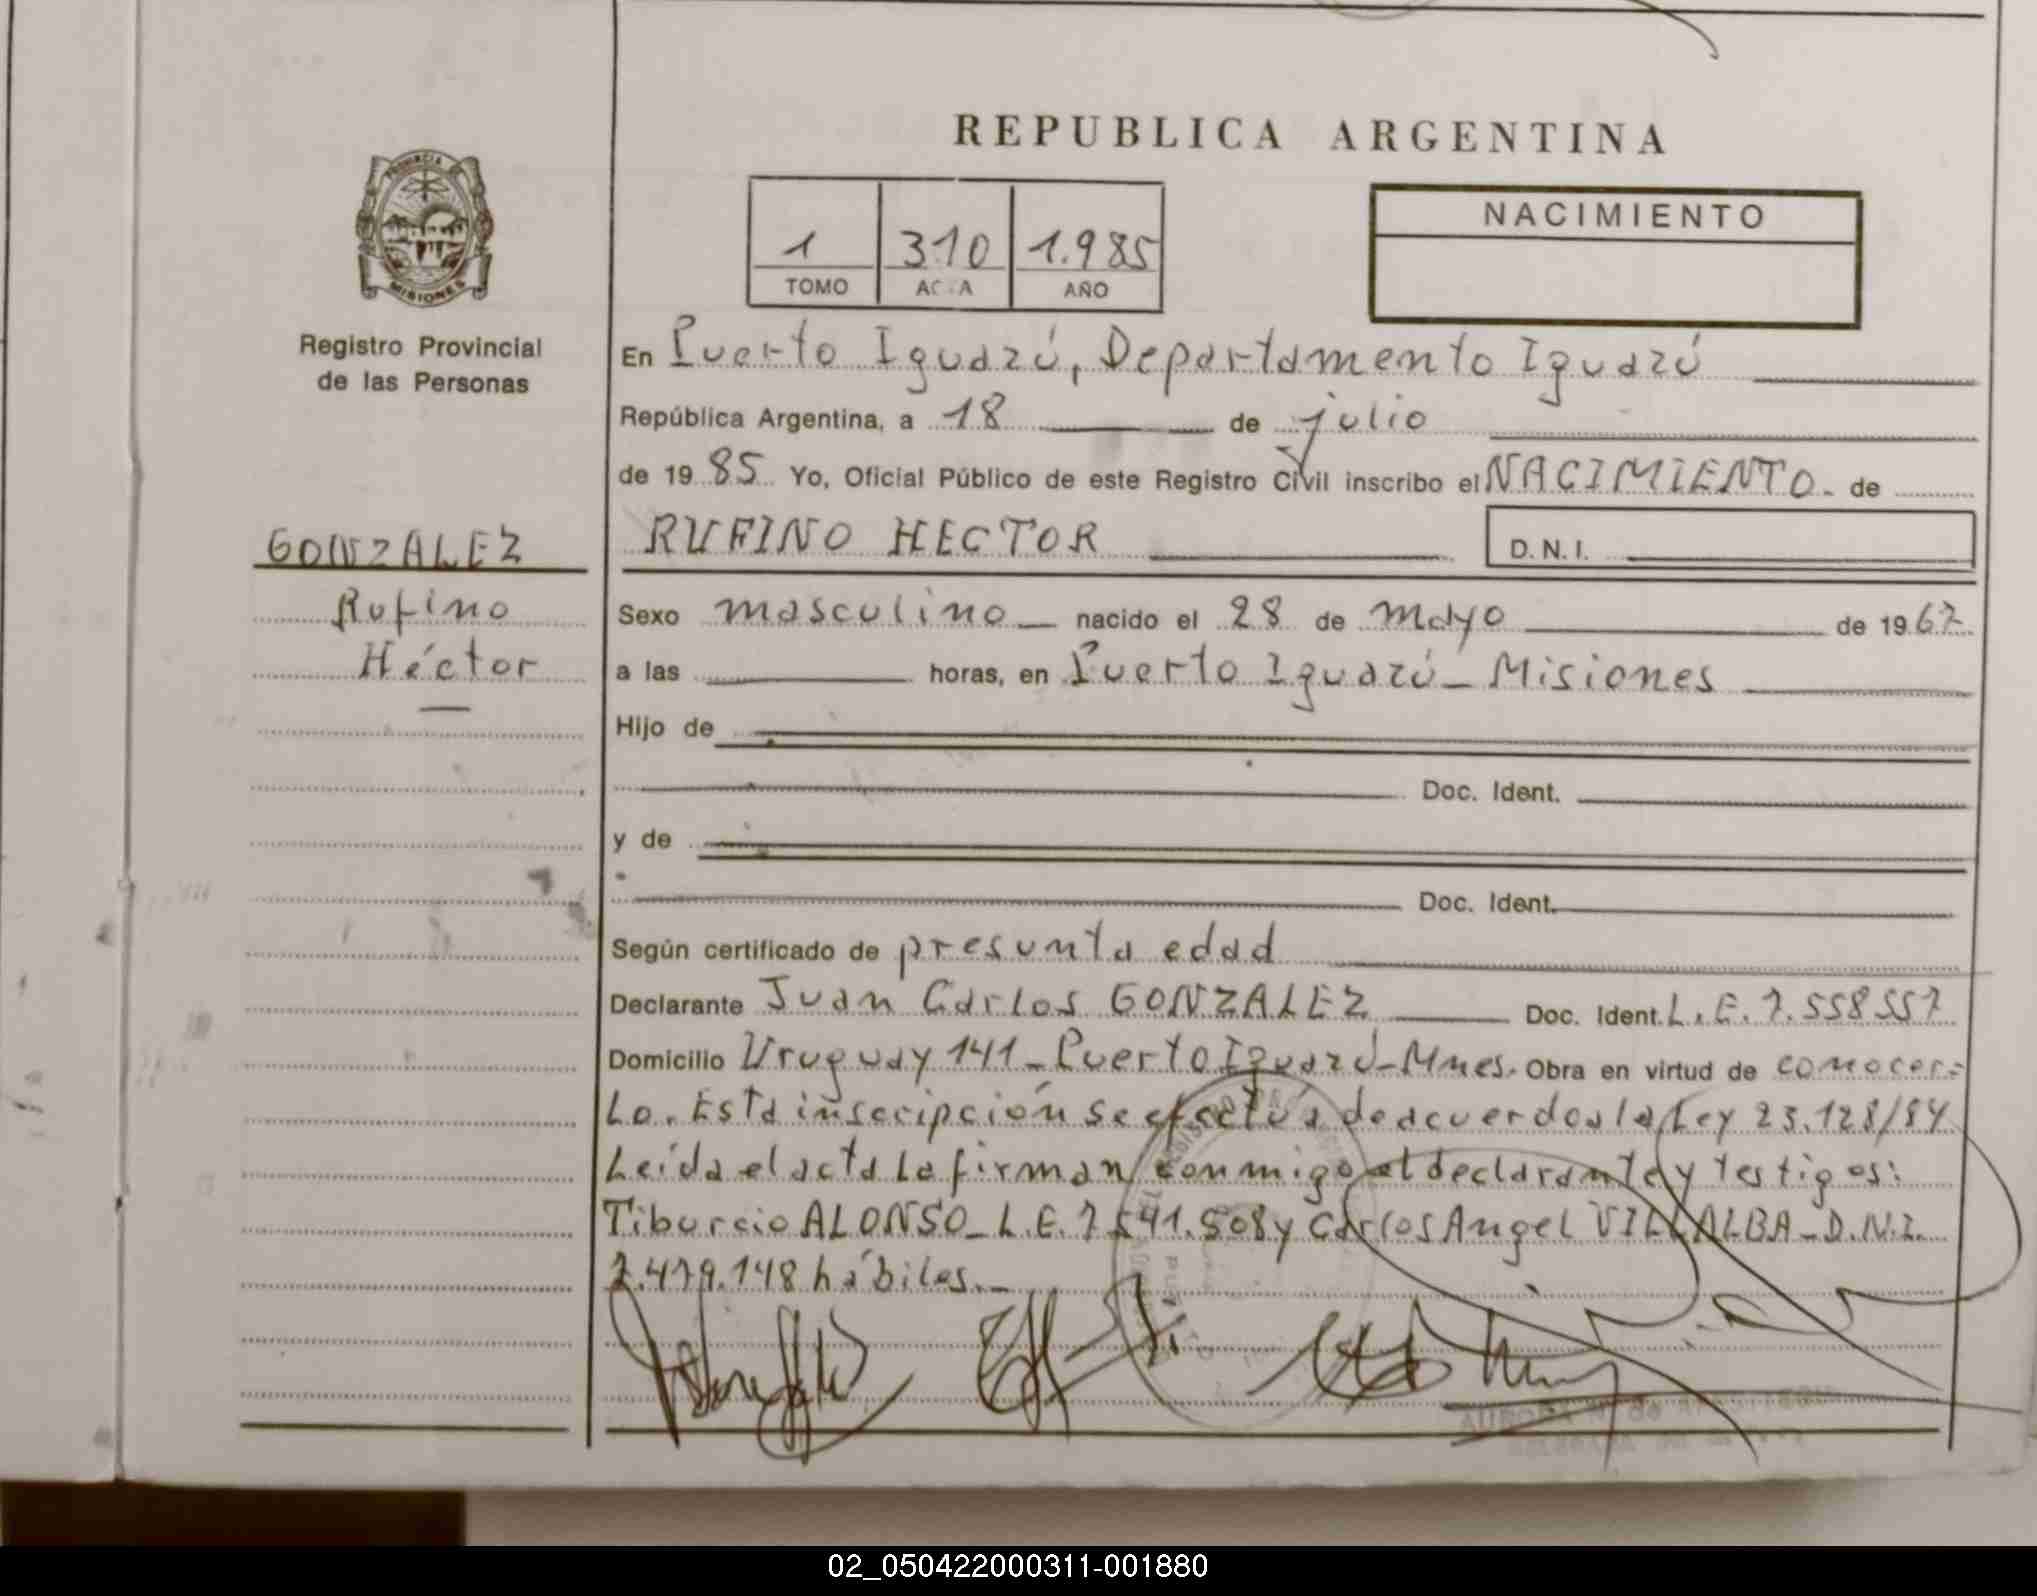 REPUBLICA ARGENTINA
PROVINCIA
MISIONES
Registro Provincial
de las Personas
1 310 1.985
TOMO ACTA AÑO
NACIMIENTO
En Puerto Iguazú, Departamento Iguazú
República Argentina, a 18 de julio
de 19 85 Yo, Oficial Público de este Registro Civil inscribo el NACIMIENTO. de
GONZALEZ
Rufino
Héctor
RUFINO HECTOR D.N.I.
Sexo masculino nacido el 28 de mayo de 19 67
a las horas, en Puerto Iguazú - Misiones
Hijo de
Doc. Ident.
y de
Doc. Ident.
Según certificado de presunta edad
Declarante Juan Carlos GONZALEZ Doc. Ident. L.E. 7.558557
Domicilio Uruguay 141 - Puerto Iguazú - Mnes. Obra en virtud de conocer=
Lo. Esta inscripción se efectúa de acuerdo a la Ley 23.128/84
Leída el acta la firman conmigo el declarante y testigos:
Tiburcio ALONSO - L.E. 7.541.508 y Carlos Angel VILLALBA - D.N.I.
7.479.148 hábiles. -
02_050422000311-001880